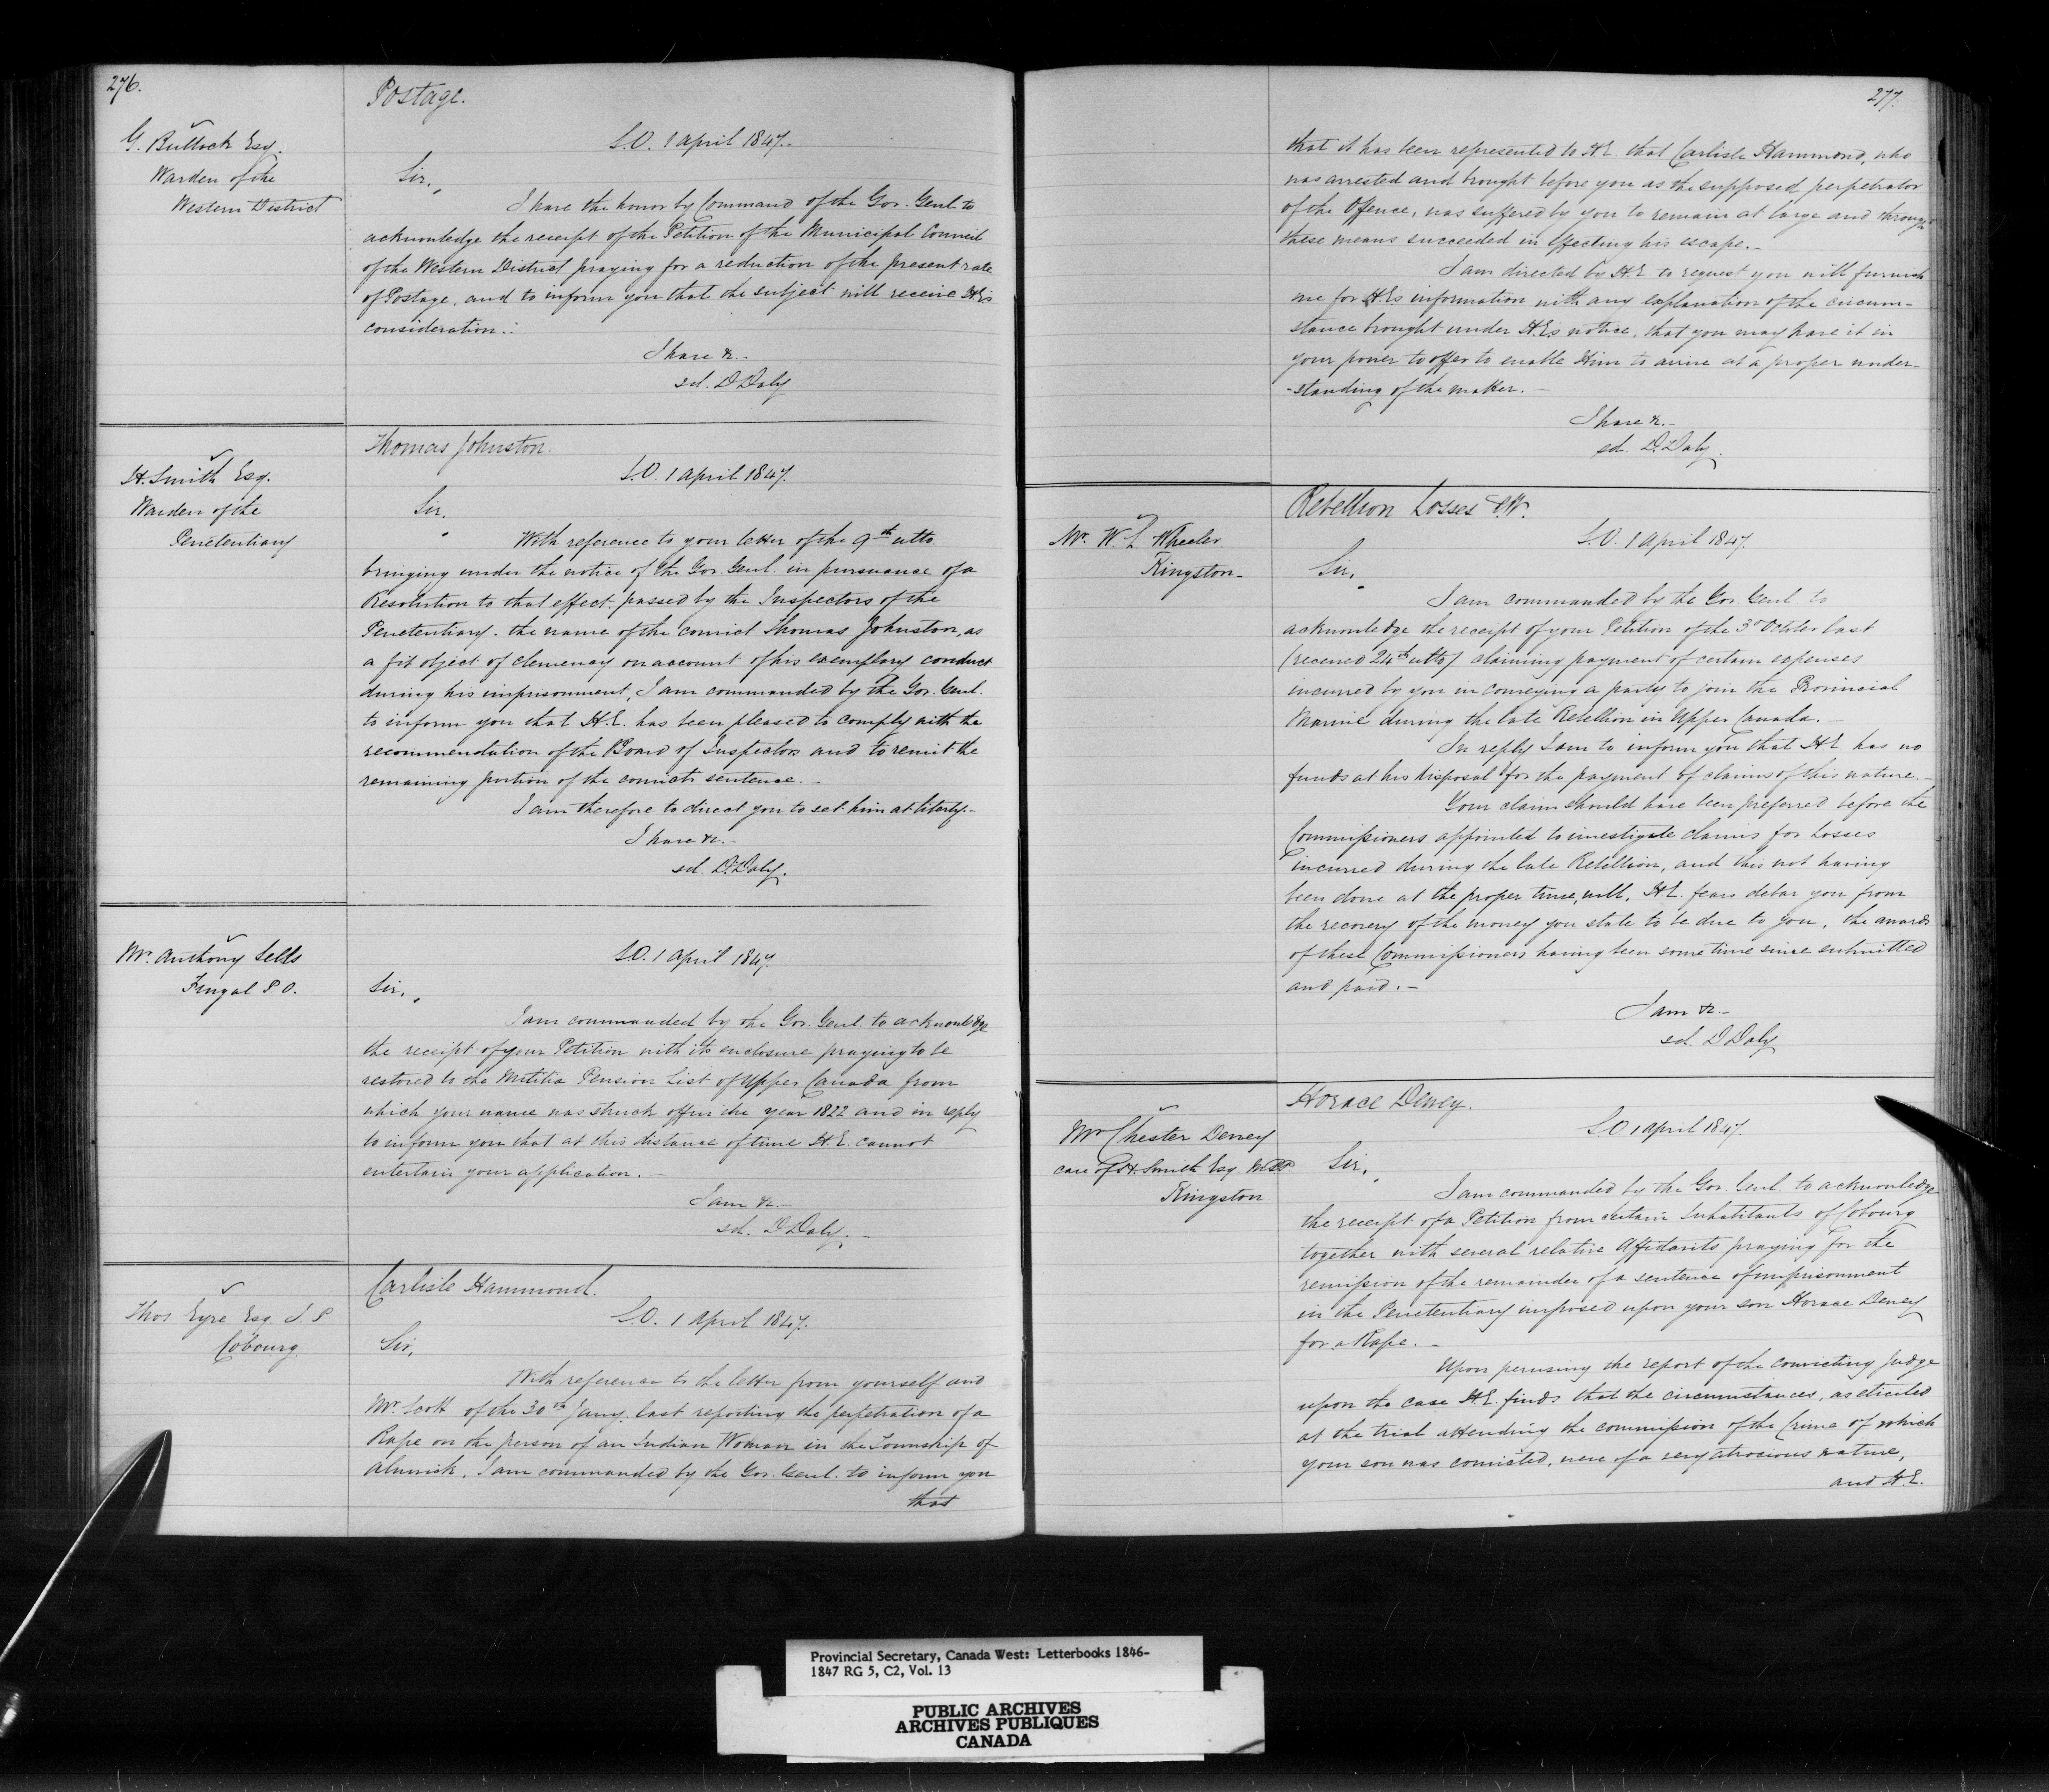 276.
Postage.
G. Bullock Esq.
Warden of the
Western District
S.O. 1 April 1847.-
Sir,
I have the honor by Command of the Gov. Genl to
acknowledge the receipt of the Petition of the Municipal Council
of the Western District praying for a reduction of the present rate
of Postage, and to inform you that the subject will receive H.E's
consideration.-
I have &c.-
sd. D Daly
Thomas Johnston.
H. Smith Esq.
Warden of the
Penetentiary
S.O. 1 April 1847.
Sir,
With reference to your letter of the 9th ulto.
bringing under the notice of the Gov. Genl. in pursuance of a
Resolution to that effect passed by the Inspectors of the
Penetentiary. the name of the convict Thomas Johnston, as
a fit object of clemency on account of his exemplary conduct
during his imprisonment, I am commanded by the Gov. Genl.
to inform you that H.E. has been pleased to comply with the
recommendation of the Board of Inspectors and to remit the
remaining portion of the convicts sentence.-
I am therefore to direct you to set him at liberty.-
I have &c.-
sd. D. Daly.
Mr. Anthony Sells
Fingal P.O.
S.O. 1 April 1847.
Sir,
I am commanded by the Gov. Genl. to acknowledge
the receipt of your Petition with its enclosure praying to be
restored to the Militia Pension List of Upper Canada from
which your name was struck off in the year 1822 and in reply
to inform you that at this distance of time H.E. cannot
entertain your application.-
I am &c.-
sd. D Daly.-
Carlisle Hammond.
Thos Eyre Esq. J.P
Cobourg.
S.O. 1 April 1847.
Sir,
With reference to the letter from yourself and
Mr. Scott of the 30th Jany. last reporting the perpetration of a
Rape on the person of an Indian Woman in the Township of
Alnwick, I am commanded by the Gov. Genl. to inform you
that
277.
that it has been represented to H.E. that Carlisle Hammond, who
was arrested and brought before you as the supposed perpetrator
of the Offence, was suffered by you to remain at large and through
these means succeeded in effecting his escape.-
I am directed by H.E. to request you will furnish
me for H.E's information with any explanation of the circum-
stance brought under H.E's notice, that you may have it in
your power to offer to enable Him to arrive at a proper under-
-standing of the matter.-
I have &c.-
sd. D. Daly.
Rebellion Losses C.W.
Mr. W. L. Wheeler
Kingston-
S.O. 1 April 1847.
Sir,
I am commanded by the Gov. Genl. to
acknowledge the receipt of your Petition of the 3d October last
(received 24th ulto) claiming payment of certain expenses
incurred by you in conveying a party to join the Provincial
Marine during the late Rebellion in Upper Canada.-
In reply I am to inform you that H.E. has no
funds at his disposal for the payment of claims of this nature.-
Your claim should have been preferred before the
Commissioners appointed to investigate claims for Losses
incurred during the late Rebellion, and this not having
been done at the proper time, will, H.E. fears debar you from
the recovery of the money you state to be due to you, the awards
of these Commissioners having been some time since submitted
and paid.-
I am &c.-
sd. D Daly
Horace Dewey.
Mr Chester Dewey
care of H. Smith Esq. M.P.P.
Kingston
S.O 1 April 1847.
Sir,
I am commanded by the Gov. Genl. to acknowledge
the receipt of a Petition from certain Inhabitants of Cobourg
together with several relative Affidavits praying for the
remission of the remainder of a sentence of imprisonment
in the Penetentiary imposed upon your son Horace Dewey
for a Rape.-
Upon perusing the report of the convicting Judge
upon the case H.E. finds that the circumstances, as elicited
at the trial attending the commission of the Crime of which
your son was convicted, were of a very atrocious nature,
and H.E.
Provincial Secretary, Canada West: Letterbooks 1846-
1847 RG 5, C2, Vol. 13
PUBLIC ARCHIVES
ARCHIVES PUBLIQUES
CANADA